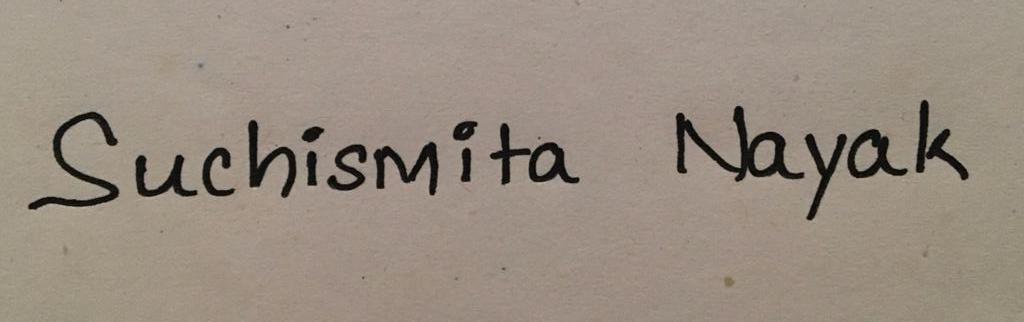 Suchismita Nayak